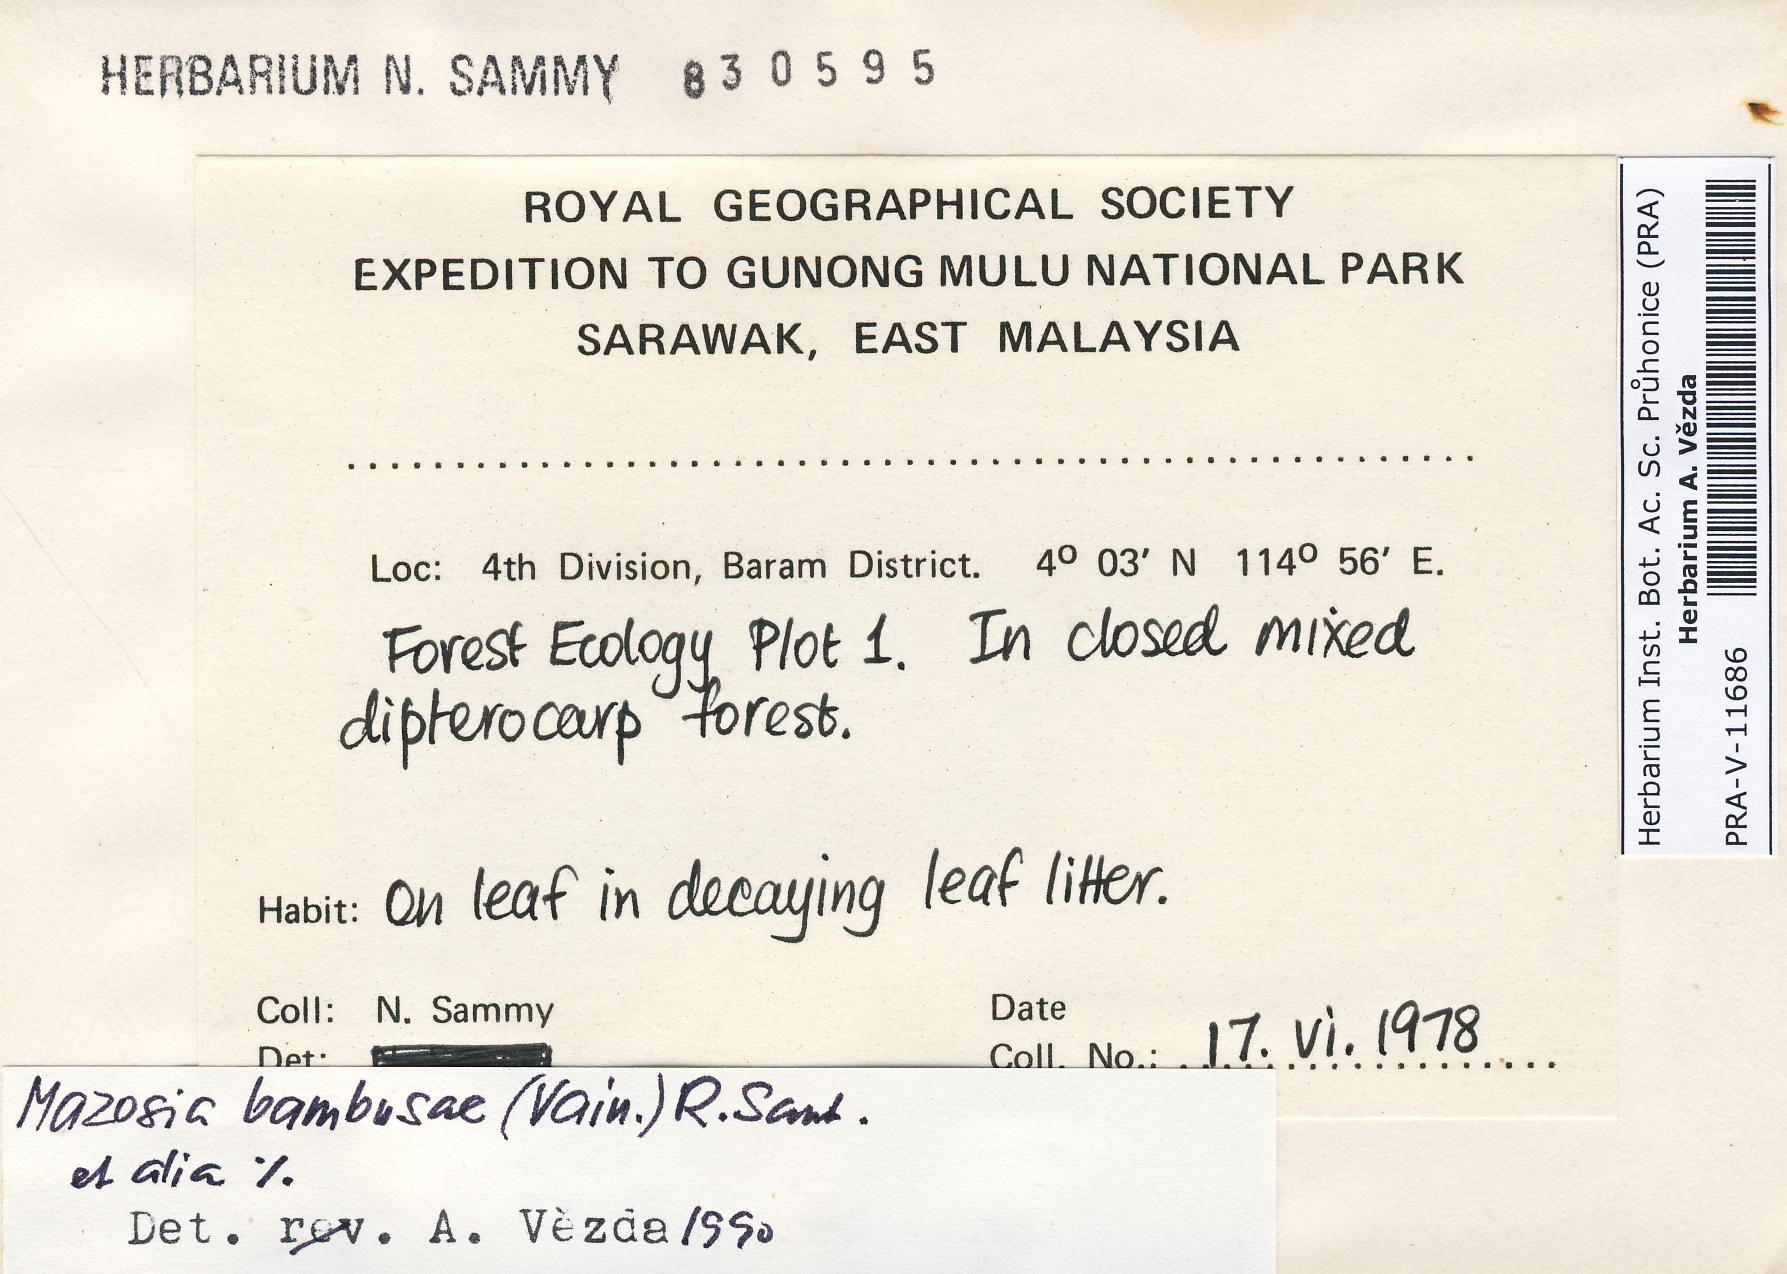 HERBARIUM N. SAMMY 830595
ROYAL GEOGRAPHICAL SOCIETY
EXPEDITION TO GUNONG MULU NATIONAL PARK
SARAWAK, EAST MALAYSIA
Loc: 4th Division, Baram District. 4º 03' N 114º 56' E.
Forest Ecology Plot 1. In closed mixed
dipterocarp forest.
Habit: On leaf in decaying leaf litter.
Coll: N. Sammy
Det:
Date
Coll. No.: 17. vi. 1978
Mazosia bambusae (Vain.) R. Sant.
et alia %.
Det. rev. A. Vèzda 1990
Herbarium Inst. Bot. Ac. Sc. Průhonice (PRA)
Herbarium A. Vězda
PRA-V-11686